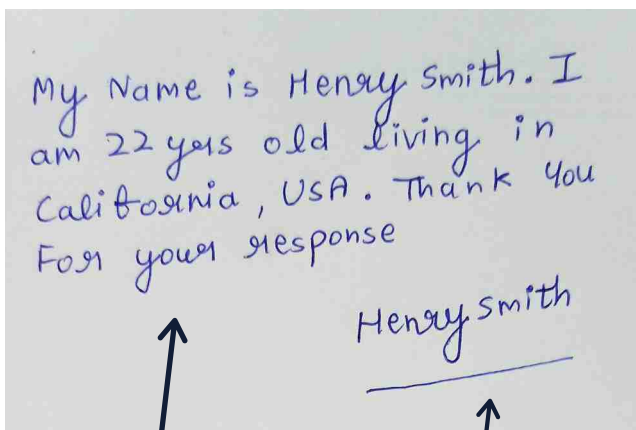 My Name is Henry Smith. I
am 22 yrs old living in
California, USA. Thank You
For your response
Henry Smith